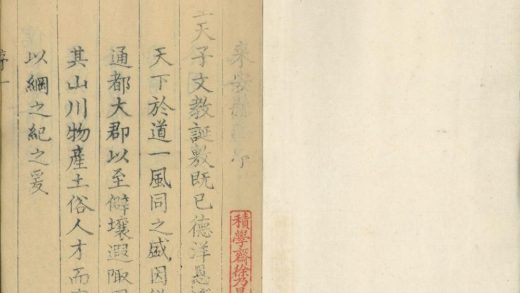 來安縣
天子文教誕敷既已德洋恩
天下於道一風同之盛因
通都大郡以至僻壤遐陬
其山川物產土俗人才而
以綱之紀之爰
序一
積學齋徐乃昌